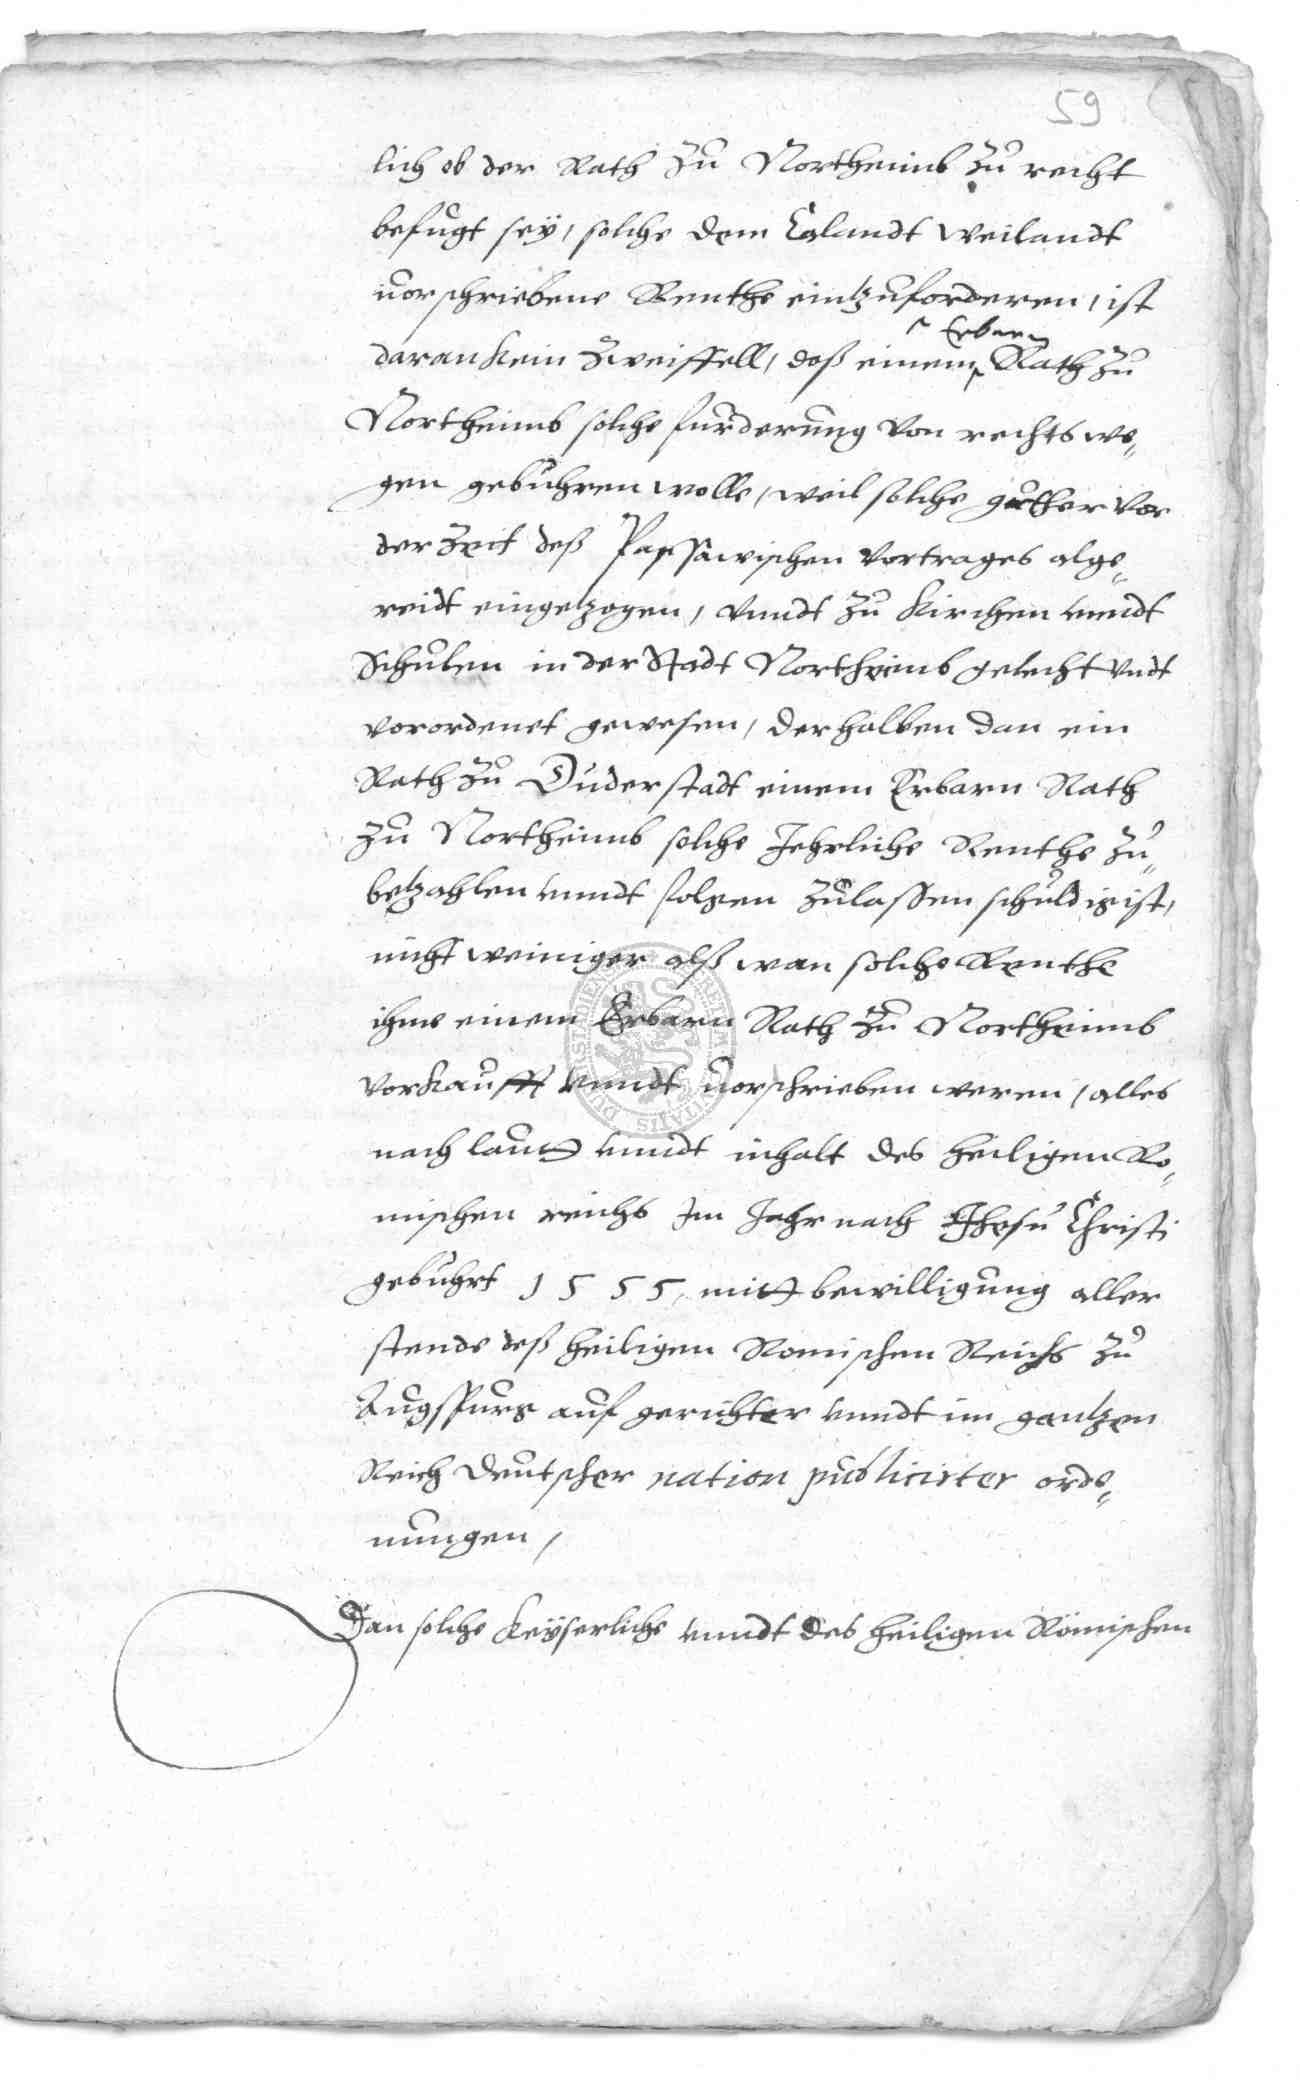 59
lich ob der Rath zu Northeimb zu recht
befugt seÿ, solche dem Calandt weilandt
vorschriebene Renthe eintzuforderen, ist
Erbarn
daran kein zweiffell, daß einem Rath zu
Northeimb solche furderung von rechts we„
gen gebuhren wolle, weil solche guther vor
der Zeit deß Passawischen vortrages alge„
reidt eingetzogen, vnndt zu Kirchen vnndt
Schulen in der Stadt Northeimb gelecht vndt
vorordenet gewesen, derhalben dan ein
Rath zu Duderstadt einem Erbarn Rath
zu Northeimb solche Jehrliche Renthe zu„
betzahlen vnndt folgen zulassen schuldig ist,
nicht weiniger alß wan solche Renthe
ihme einem Erbarn Rath zu Northeimb
vorkaufft vnndt vorschrieben weren, alles
nach lautt vnndt inhalt des heiligen Ro„
mischen reichs Im Jahr nach Jhesu Christi
gebuhrt 1555, mitt bewilligung aller
stende deß heiligen Romischen Reichs zu
Augspurg aufgerichter vnndt im gantzen
Reich deutscher nation publicirter orde„
nungen,
Dan solche Keÿserliche vnndt des heiligen Römischen